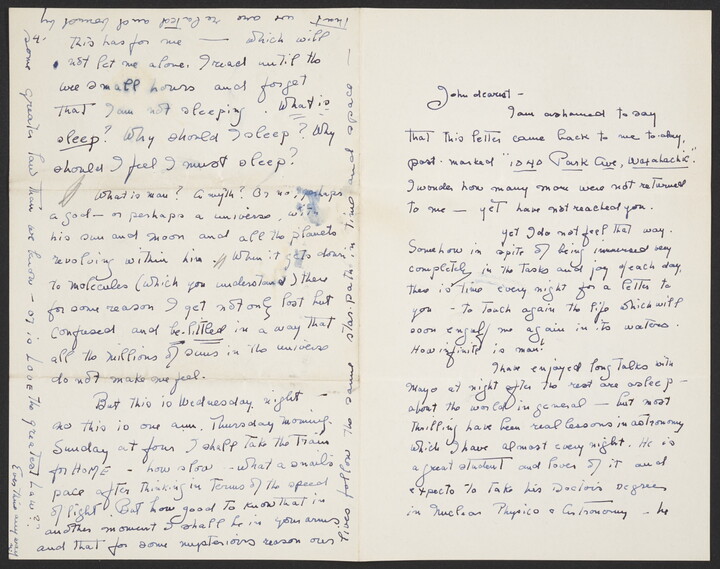 John dearest -
I am ashamed to say
that this letter came back to me to-day,
post-marked "1040 Park Ave, Waxahachie".
I wonder how many more were not returned
to me — yet have not reached you.
yet I do not feel that way.
Somehow in spite of being immersed very
completely in the tasks and joy of each day,
there is time every night for a letter to
you - to touch again the life which will
soon engulf me again in its waters.
How infinite is man!
I have enjoyed long talks with
Mayo at night after the rest are asleep -
about the world in general - but most
thrilling have been real lessons in astronomy
which I have almost every night. He is
a great student and lover of it and
expects to take his Doctor's Degree
in Nuclear Physics & Astronomy - he
4.
This has for me — which will
not let me alone. I read until the
wee small hours and forget
that I am not sleeping. What is
sleep? Why should I sleep? Why
should I feel I must sleep?
What is man? A myth? Or no, perhaps
a god - or perhaps a universe, with
his sun and moon and all the planets
revolving within him. When it gets down
to molecules (which you understand) there
for some reason I get not only lost but
confused and be-littled in a way that
all the millions of suns in the universe
do not make me feel.
But this is Wednesday night -
no this is one a.m. Thursday morning.
Sunday at four I shall take the train
for HOME - how slow - what a snail's
pace after thinking in terms of the speed
of light. But how good to know that in
another moment I shall be in your arms
and that for some mysterious reason our
lives follow the same star-path in time and space —
that we are related and bound by
some greater law than we know - or is Love the greatest Law??